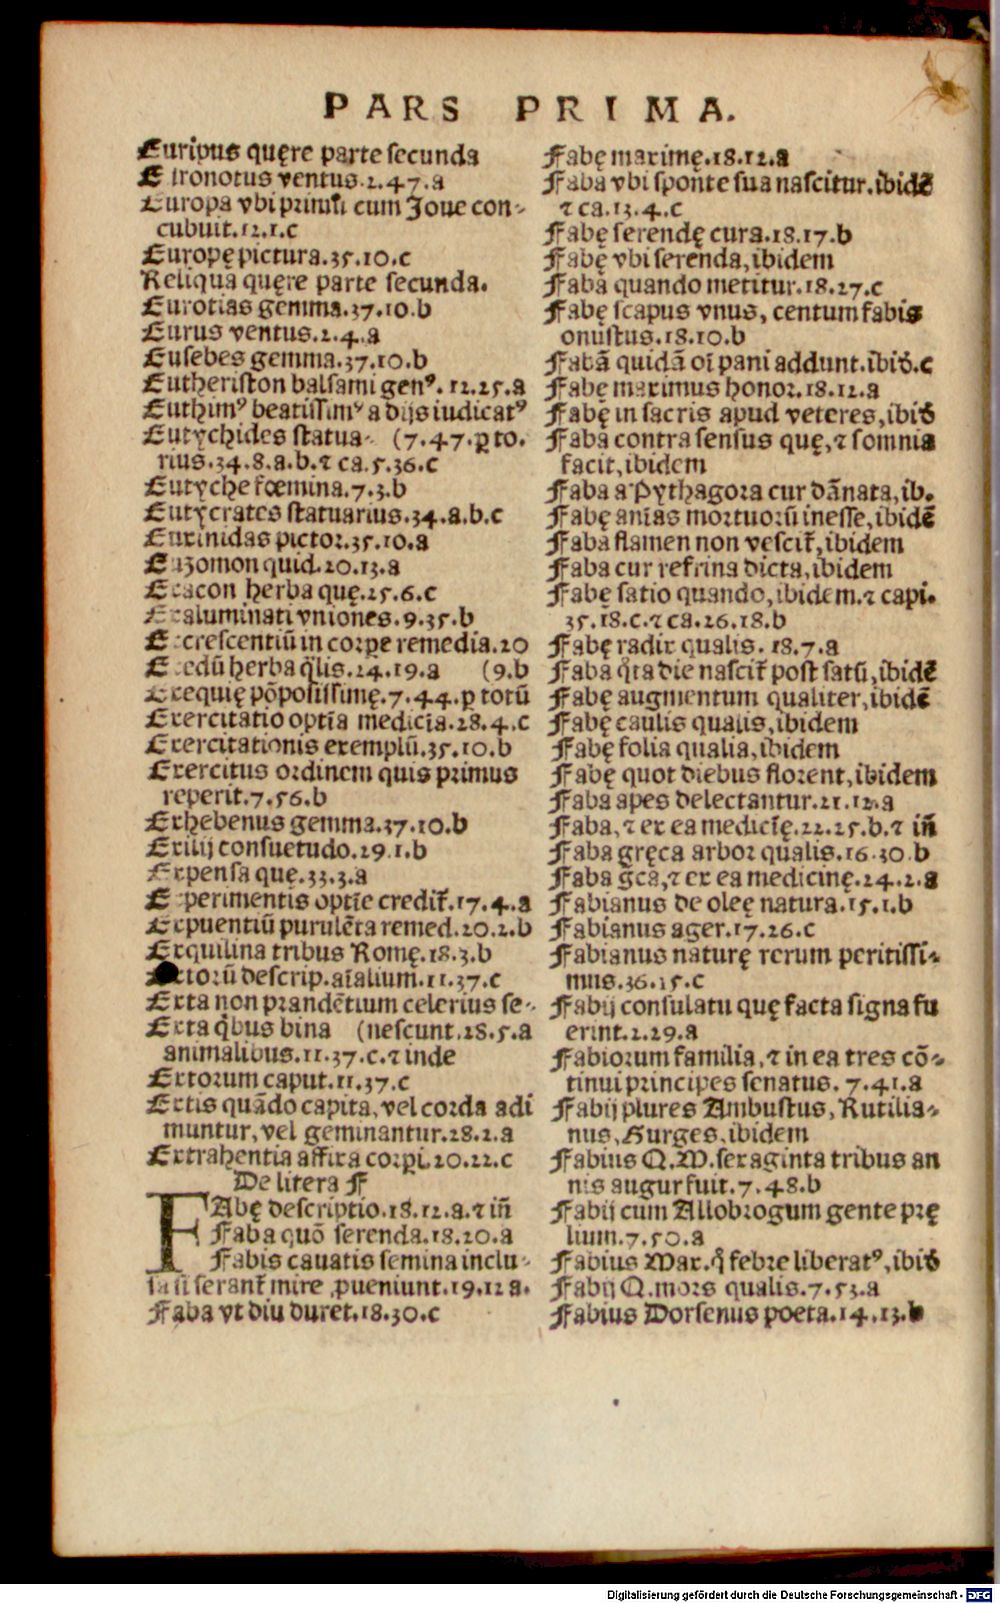 PARS PRIMA.
Euripus quęre parte secunda
E tronotus ventus.2.47.a
Europa vbi primũ cum Joue con-
cubuit.12.1.c
Europę pictura.35.10.c
Reliqua quęre parte secunda.
Eurotias gemma.37.10.b
Eurus ventus.2.4.a
Eusebes gemma.37.10.b
Eutheriston balsami genꝰ. 12.25.a
Euthimꝰ beatissimꝰ a dijs iudicatꝰ
Eutychides statua- (7.47.ꝑ to.
rius.34.8.a.b.⁊ ca.5.36.c
Eutyche fœmina.7.3.b
Eutycrates statuarius.34.a.b.c
Euxinidas pictor.35.10.a
E zomon quid.20.13.a
E acon herba quę.25.6.c
Exaluminati vniones.9.35.b
E crescentiũ in corpe remedia.20
E edũ herba q̃lis.24.19.a (9.b
Exequię põposissimę.7.44.ꝑ totũ
Exercitatio optĩa medicĩa.28.4.c
Exercitationis exemplũ.35.10.b
Exercitus ordinem quis primus
reperit.7.56.b
Exhebenus gemma.37.10.b
Exilij consuetudo.29.1.b
Expensa quę.33.3.a
E perimentis optĩe credit̃.17.4.a
Expuentiũ purulẽta remed.20.2.b
Exquilina tribus Romę.18.3.b
torũ descrip.aĩalium.11.37.c
Exta non prandẽtium celerius se-
Exta q̃bus bina (nescunt.28.5.a
animalibus.11.37.c.⁊ inde
Extorum caput.11.37.c
Extis quãdo capita, vel corda adi
muntur, vel geminantur.28.2.a
Extrahentia affixa corpi.20.22.c
De litera F
FAbę descriptio.18.12.a.⁊ iñ
Faba quõ serenda.18.20.a
Fabis cauatis semina inclu-
sa si serant̃ mire ꝓueniunt.19.12 a.
Faba vt diu duret.18.30.c
Fabę maximę.18.12.a
Faba vbi sponte sua nascitur.ibidẽ
⁊ ca.13.4.c
Fabę serendę cura.18.17.b
Fabę vbi serenda, ibidem
Faba quando metitur.18.27.c
Fabę scapus vnus, centum fabis
onustus.18.10.b
Fabã quidã oĩ pani addunt.ibid̃.c
Fabę maximus honor.18.12.a
Fabę in sacris apud veteres, ibid̃
Faba contra sensus quę, ⁊ somnia
facit, ibidem
Faba a Pythagora cur dãnata, ib.
Fabę anĩas mortuorũ inesse, ibidẽ
Faba flamen non vescit̃, ibidem
Faba cur refrina dicta, ibidem
Fabę satio quando, ibidem.⁊ capi.
35.18.c.⁊ ca.26.18.b
Fabę radix qualis. 18.7.a
Faba q̃ta die nascit̃ post satũ, ibidẽ
Fabę augmentum qualiter, ibidẽ
Fabę caulis qualis, ibidem
Fabę folia qualia, ibidem
Fabę quot diebus florent, ibidem
Faba apes delectantur.21.12.a
Faba, ⁊ ex ea medicĩę.22.25.b.⁊ iñ
Faba gręca arbor qualis.16.30.b
Faba gc̃a, ⁊ ex ea medicinę.24.2.a
Fabianus de oleę natura.15.1.b
Fabianus ager.17.26.c
Fabianus naturę rerum peritissi-
mus.36.15.c
Fabij consulatu quę facta signa fu
erint.2.29.a
Fabiorum familia, ⁊ in ea tres cõ-
tinui principes senatus. 7.41.a
Fabij plures Ambustus, Rutilia-
nus, Gurges, ibidem
Fabius Q.M.sexaginta tribus an
nis augur fuit.7.48.b
Fabij cum Allobrogum gente prę
lium.7.50.a
Fabius Max.q̃ febre liberatꝰ, ibid̃
Fabij Q.mors qualis.7.53.a
Fabius Dorsenus poeta.14.13.b
Digitalisierung gefördert durch die Deutsche Forschungsgemeinschaft - DFG